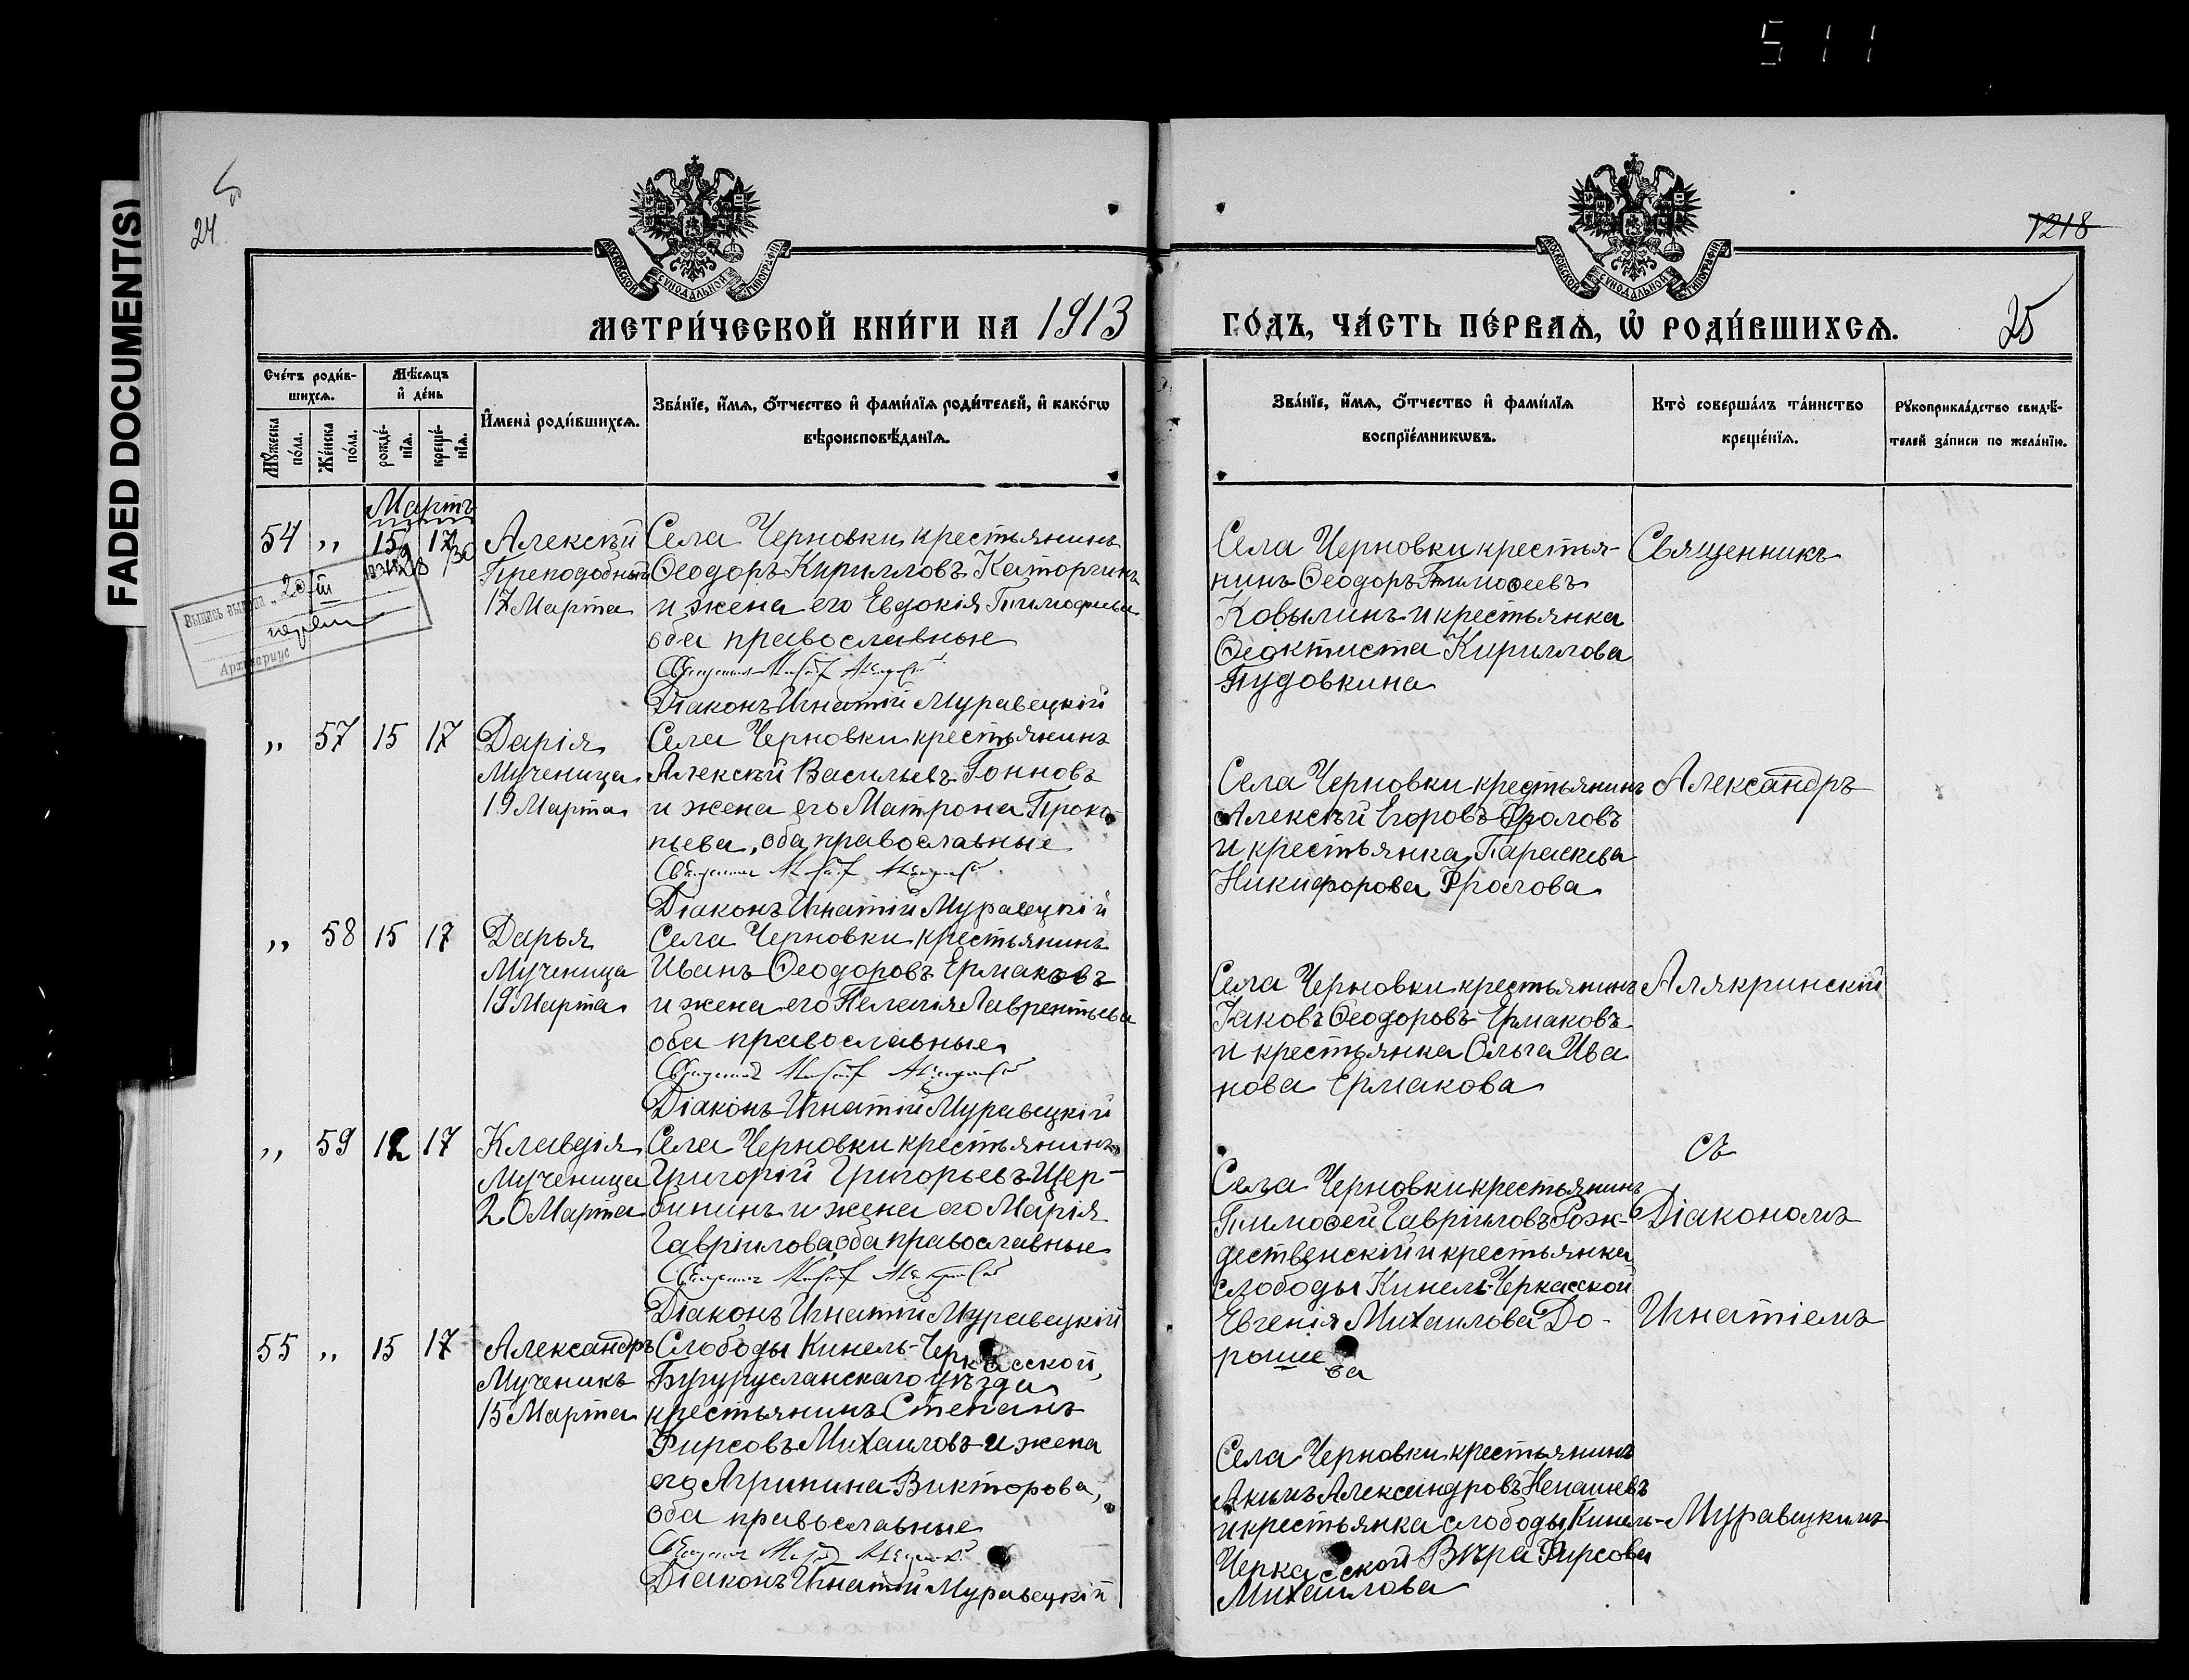 511
FADED DOCUMENT(S)
24
1218
МОСКОВСКОЙ СѴНОДАЛЬНОЙ ТИПОГРАФІИ
МОСКОВСКОЙ СѴНОДАЛЬНОЙ ТИПОГРАФІИ
МЕТРИ́ЧЕСКОЙ КНИ́ГИ НА 1913
ГО́ДЪ, ЧА́СТЬ ПЕ́РВАѦ, Ѽ РОДИ́ВШИХСѦ.
25
Сче́тъ роди́в-
шихсѧ.
Мꙋ́жеска по́ла.
Же́нска по́ла.
Мѣ́сѧцъ
и҆ де́нь
рожде́-
нїѧ.
креще́-
нїѧ.
И҆мена̀ роди́вшихсѧ.
Зва́нїе, и҆́мѧ, ѻ҆́тчество и҆ фами́лїѧ роди́телей, и҆ како́гѡ
вѣроисповѣ́данїѧ.
Зва́нїе, и҆́мѧ, ѻ҆́тчество и҆ фами́лїѧ
воспрїе́мникѡвъ.
Кто̀ соверша́лъ та́инство
креще́нїѧ.
Рꙋкоприкла́дство свидѣ́-
телей за́писи по жела́нїю.
Мартъ
54 „ 15 17
Алексѣй
Преподобный
17 Марта
Села Черновки крестьянинъ
Ѳеодоръ Кирилловъ Каторгинъ
и жена его Евдокія Тимофеева
оба православные
Діаконъ Игнатій Муравецкій
Села Черновки крестья-
нинъ Ѳеодоръ Тимоѳеевъ
Ковылинъ и крестьянка
Ѳеоктиста Кириллова
Пудовкина
Священникъ
20 III
Архивариус
„ 57 15 17
Дарія
Мученица
19 Марта
Села Черновки крестьянинъ
Алексѣй Васильевъ Гонновъ
и жена его Матрона Проко-
пьева, оба православные
Діаконъ Игнатій Муравецкій
Села Черновки крестьянинъ
Алексѣй Егоровъ Фроловъ
и крестьянка Параскева
Никифорова Фролова
Александръ
„ 58 15 17
Дарья
Мученица
19 Марта
Села Черновки крестьянинъ
Иванъ Ѳеодоровъ Ермаковъ
и жена его Пелагія Лаврентьева
оба православные
Діаконъ Игнатій Муравецкій
Села Черновки крестьянинъ
Іаковъ Ѳеодоровъ Ермаковъ
и крестьянка Ольга Ива
нова Ермакова
Алякринскій
„ 59 12 17
Клавдія
Мученица
20 Марта
Села Черновки крестьянинъ
Григорій Григорьевъ Щер-
бининъ и жена его Марія
Гавріилова, оба православные
Діаконъ Игнатій Муравецкій
Села Черновки крестьянинъ
Тимоѳей Гавріиловъ Рож-
дественскій и крестьянка
слободы Кинель-Черкасской
Евгенія Михаилова До-
роше ва
съ
Діакономъ
Игнатіемъ
55 „ 15 17
Александръ
Мученикъ
15 Марта
Слободы Кинель-Черкасской,
Бугурусланскаго уѣзда
крестьянинъ Степанъ
Фирсовъ Михаиловъ и жена
его Агрипина Викторова,
оба православные
Діаконъ Игнатій Муравецкій
Села Черновки крестьянинъ
Акимъ Александровъ Ненашевъ
и крестьянка слободы Кинель-
Черкасской Вѣра Фирсова
Михаилова
Муравецкимъ